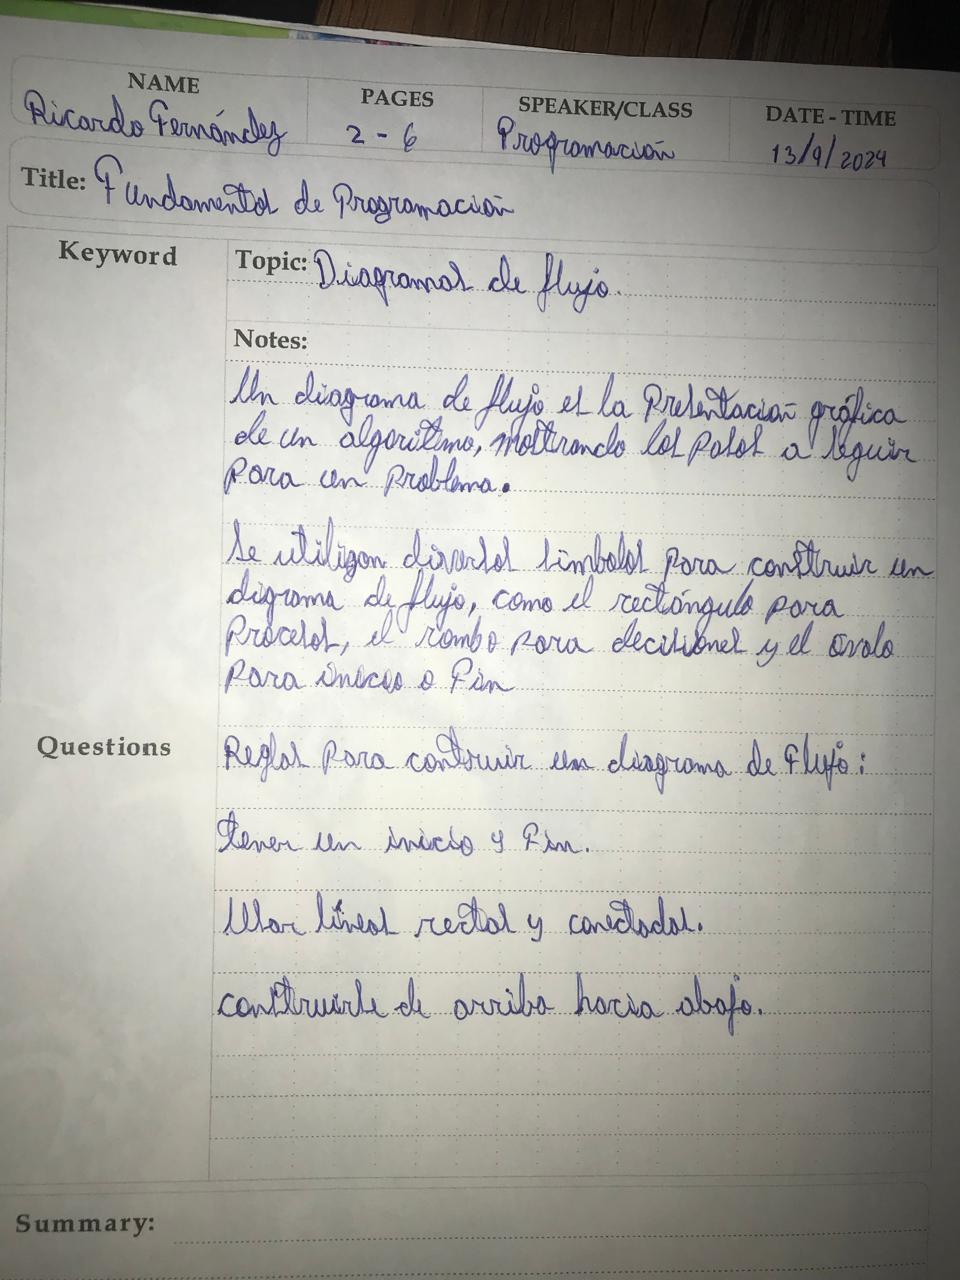 NAME PAGES SPEAKER/CLASS DATE - TIME
Ricardo Fernández 2 - 6 Programación 13/9/2024
Title: Fundamentos de Programación
Keyword
Topic: Diagramas de flujo.
Notes:
Un diagrama de flujo es la Presentación gráfica
de un algoritimo, mostrando los pasos a seguir
para un problema.
Se utilizan diversos simbolos para construir un
digrama de flujo, como el rectángulo para
Procesos, el rombo para decisiones y el ovalo
para inicio o Fin
Questions
Reglas para construir un diagrama de Flujo:
tener un inicio y Fin.
Usar líneas rectas y conectadas.
construirse de arriba hacia abajo.
Summary: